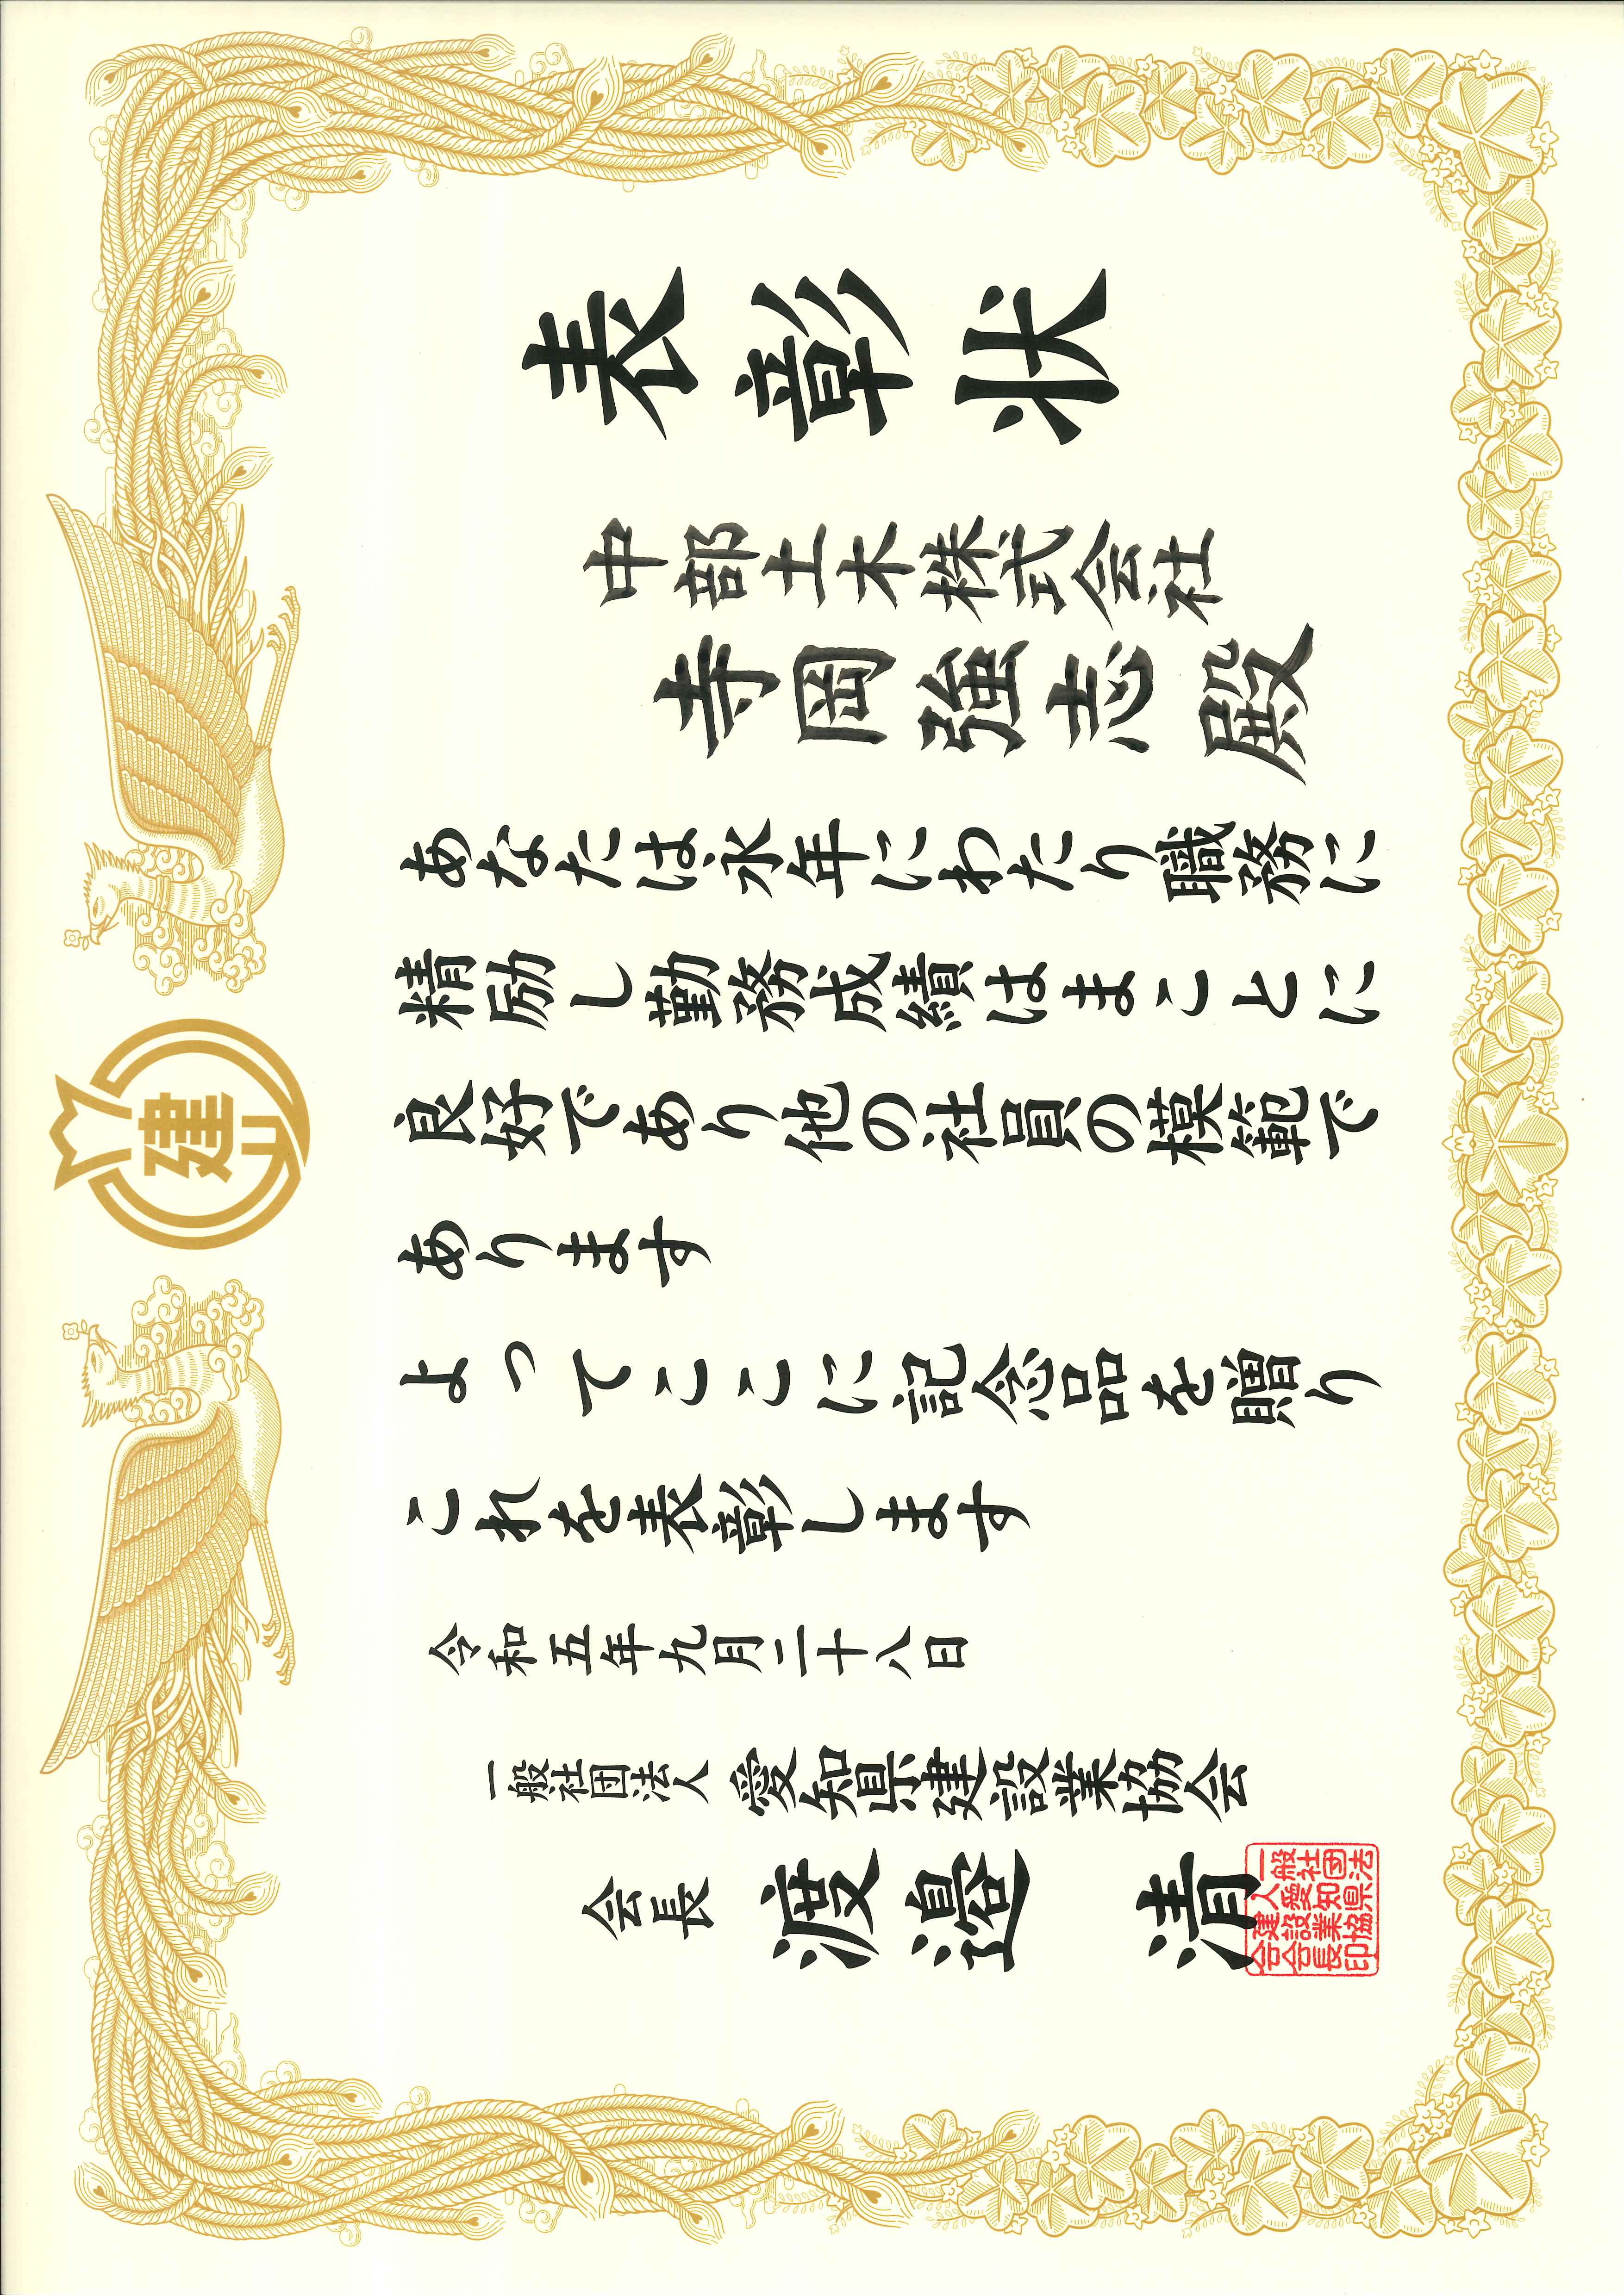 建
表彰状
中部土木株式会社
寺岡強志殿
あなたは永年にわたり職務に
精励し勤務成績はまことに
良好であり他の社員の模範で
あります
よってここに記念品を贈り
これを表彰します
令和五年九月二十八日
一般社団法人 愛知県建設業協会
会長 渡邉 清
一般社団法
人愛知県
建設業協
会会長印